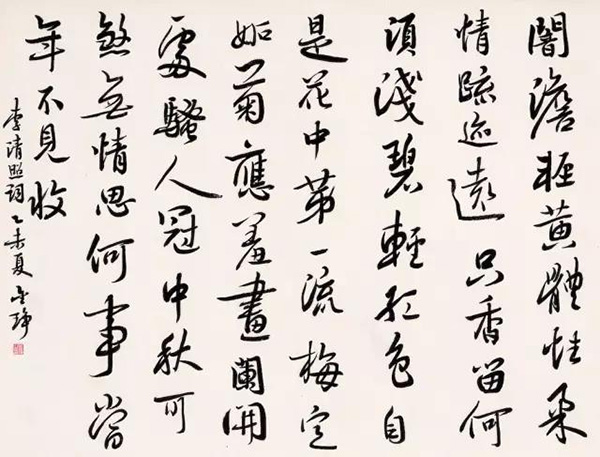 闇澹輕黃體性柔
情疏迹遠只香留何
須淺碧輕紅色自
是花中第一流梅定
妒菊應羞畫闌開
處騷人冠中秋可
煞無情思何事當
年不見收
李清照詞乙未夏